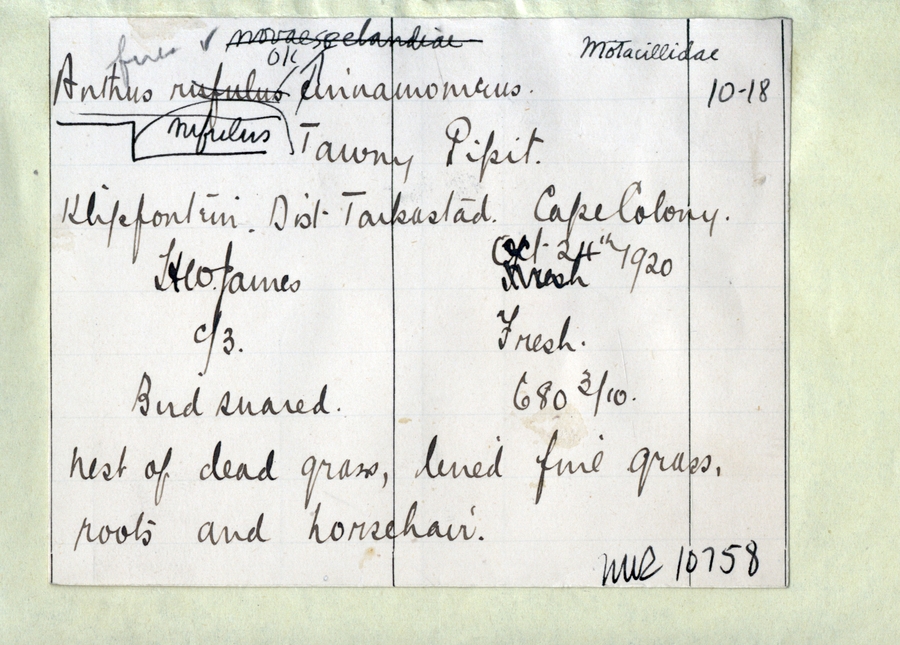 novaeseelandiae
OK
Motacillidae
Anthus rufulus cinnamomeus.
10-18
rufulus
Tawny Pipit.
Klipfontein. Dist Tarkastad. Cape Colony.
Oct 24th 1920
HW James
Fresh
c/3.
Fresh.
Bird snared.
680 3/10.
Nest of dead grass, lined fine grass,
roots and horsehair.
10758